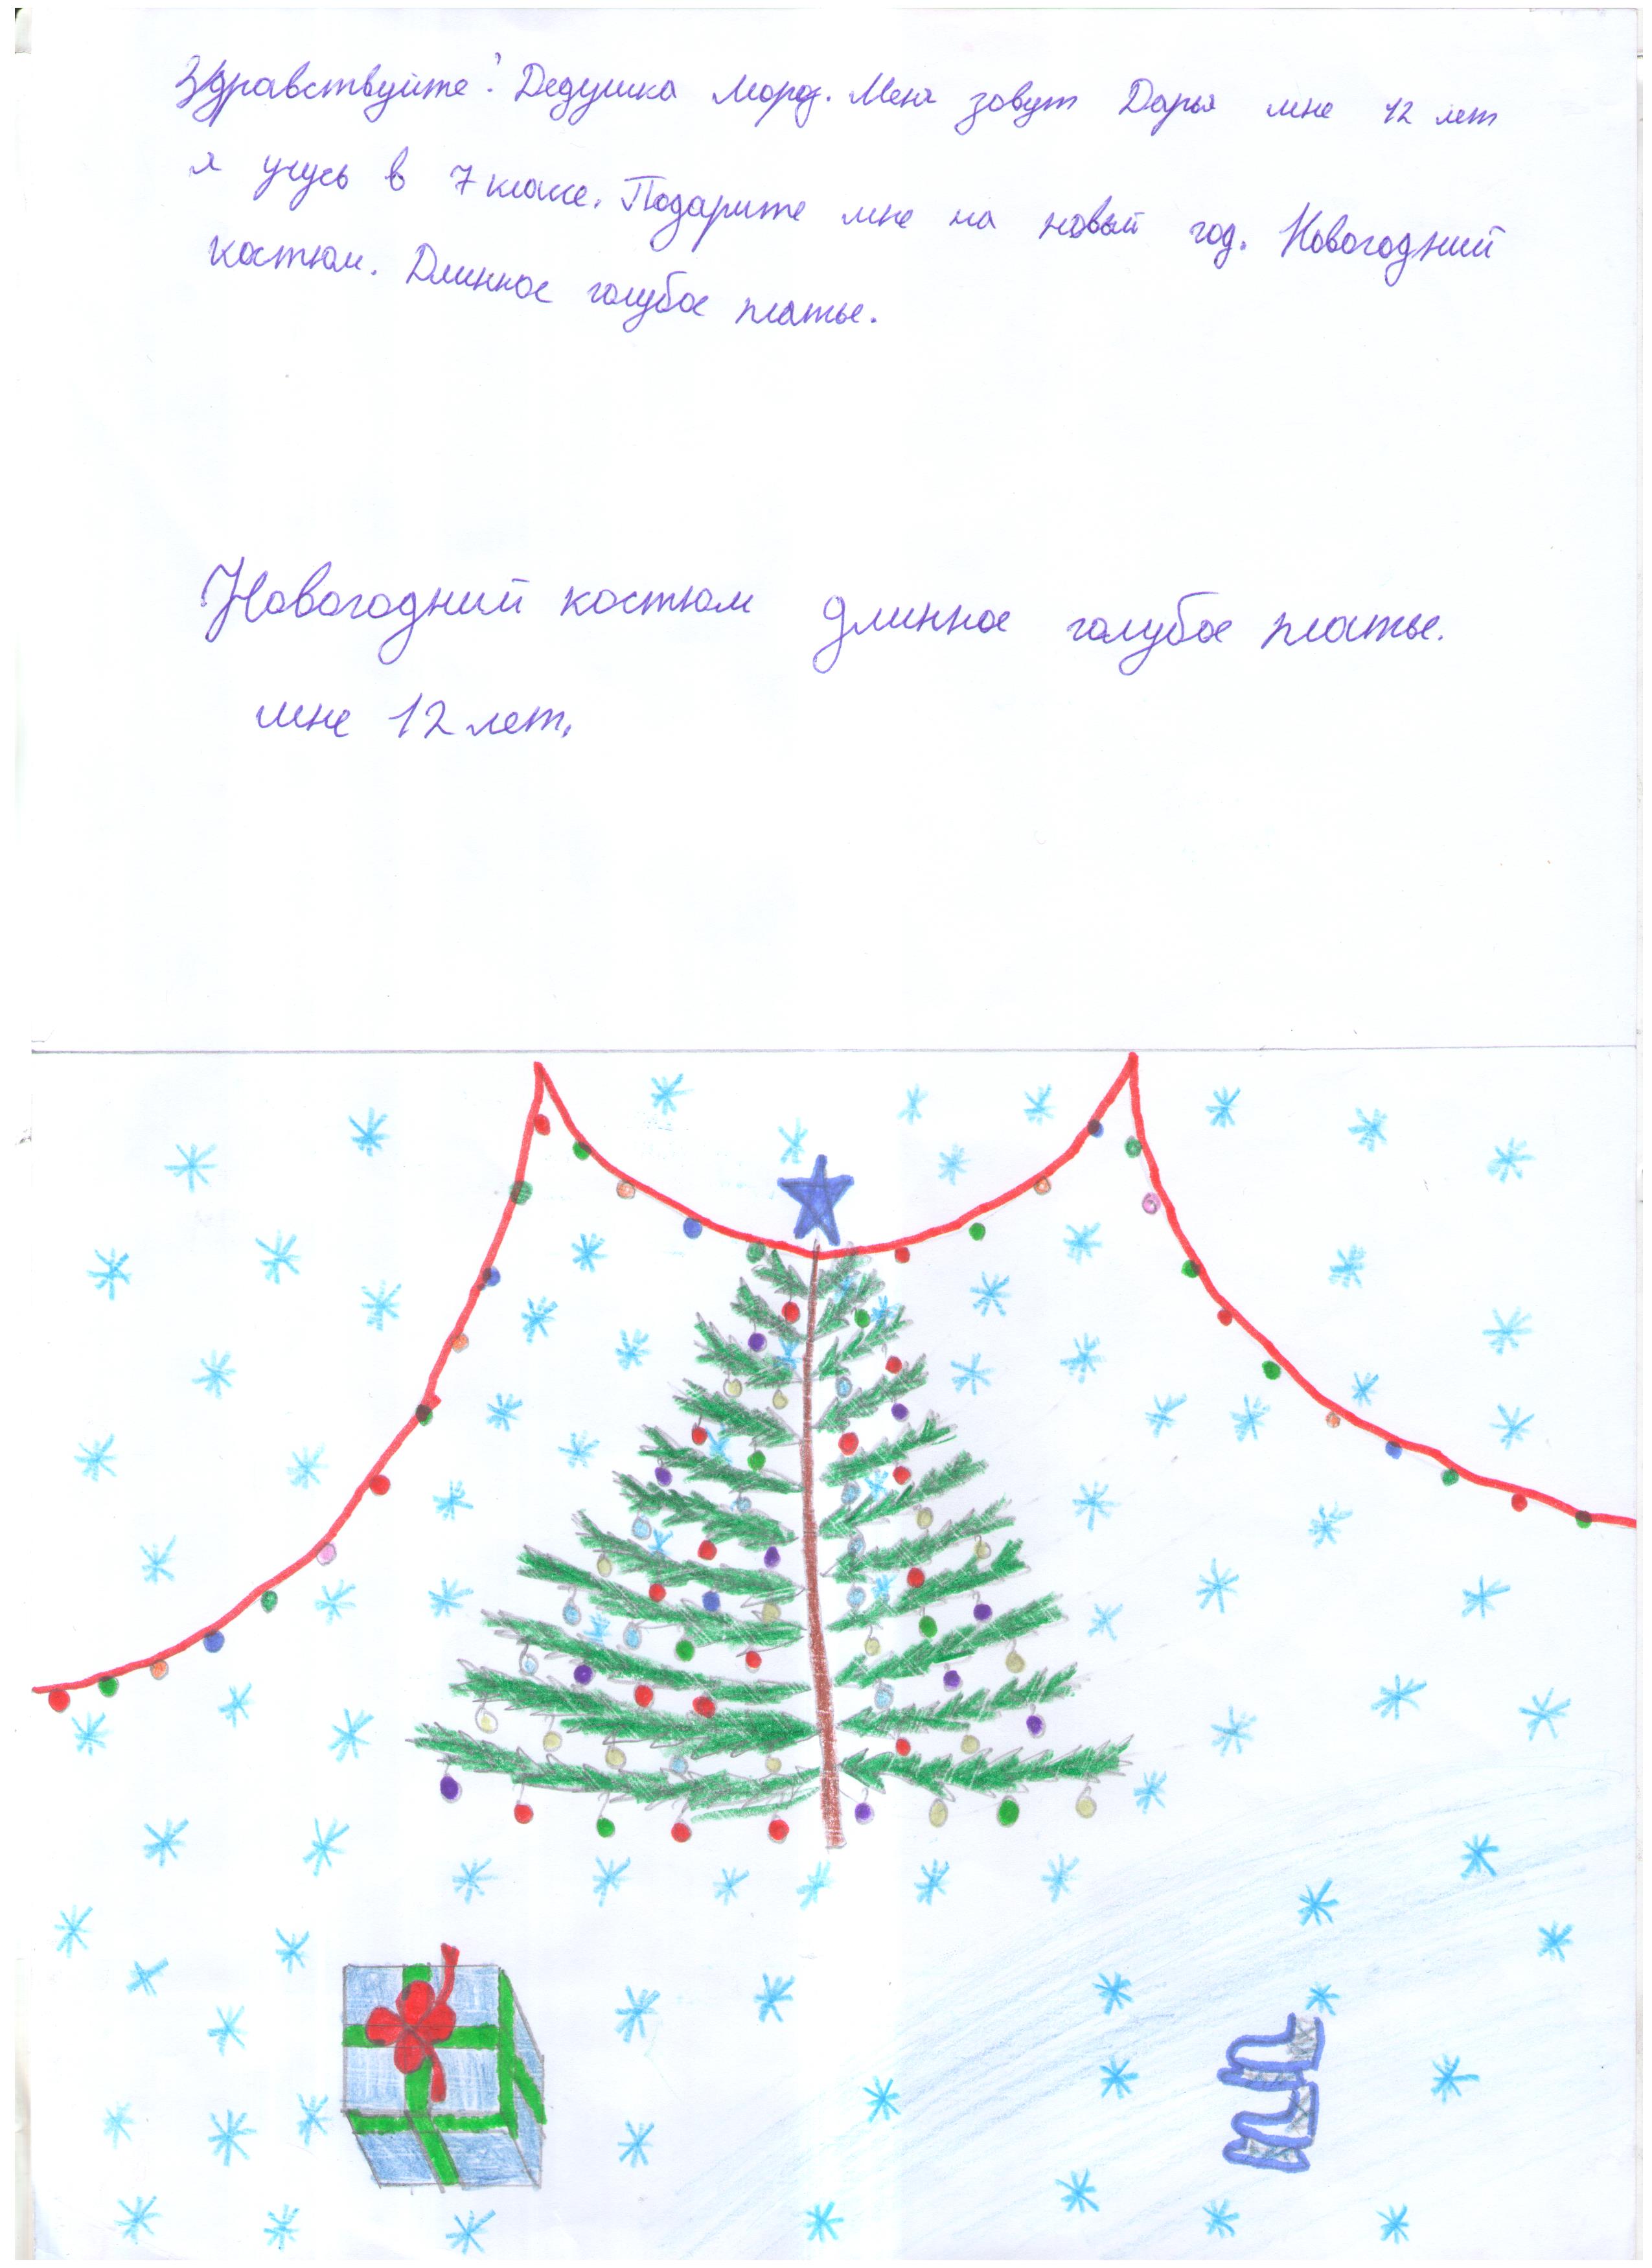 Здравствуйте! Дедушка Мороз. Меня зовут Дарья мне 12 лет
я учусь в 7 классе. Подарите мне на новый год. Новогодний
костюм. Длинное голубое платье.
Новогодний костюм длинное голубое платье.
мне 12 лет.